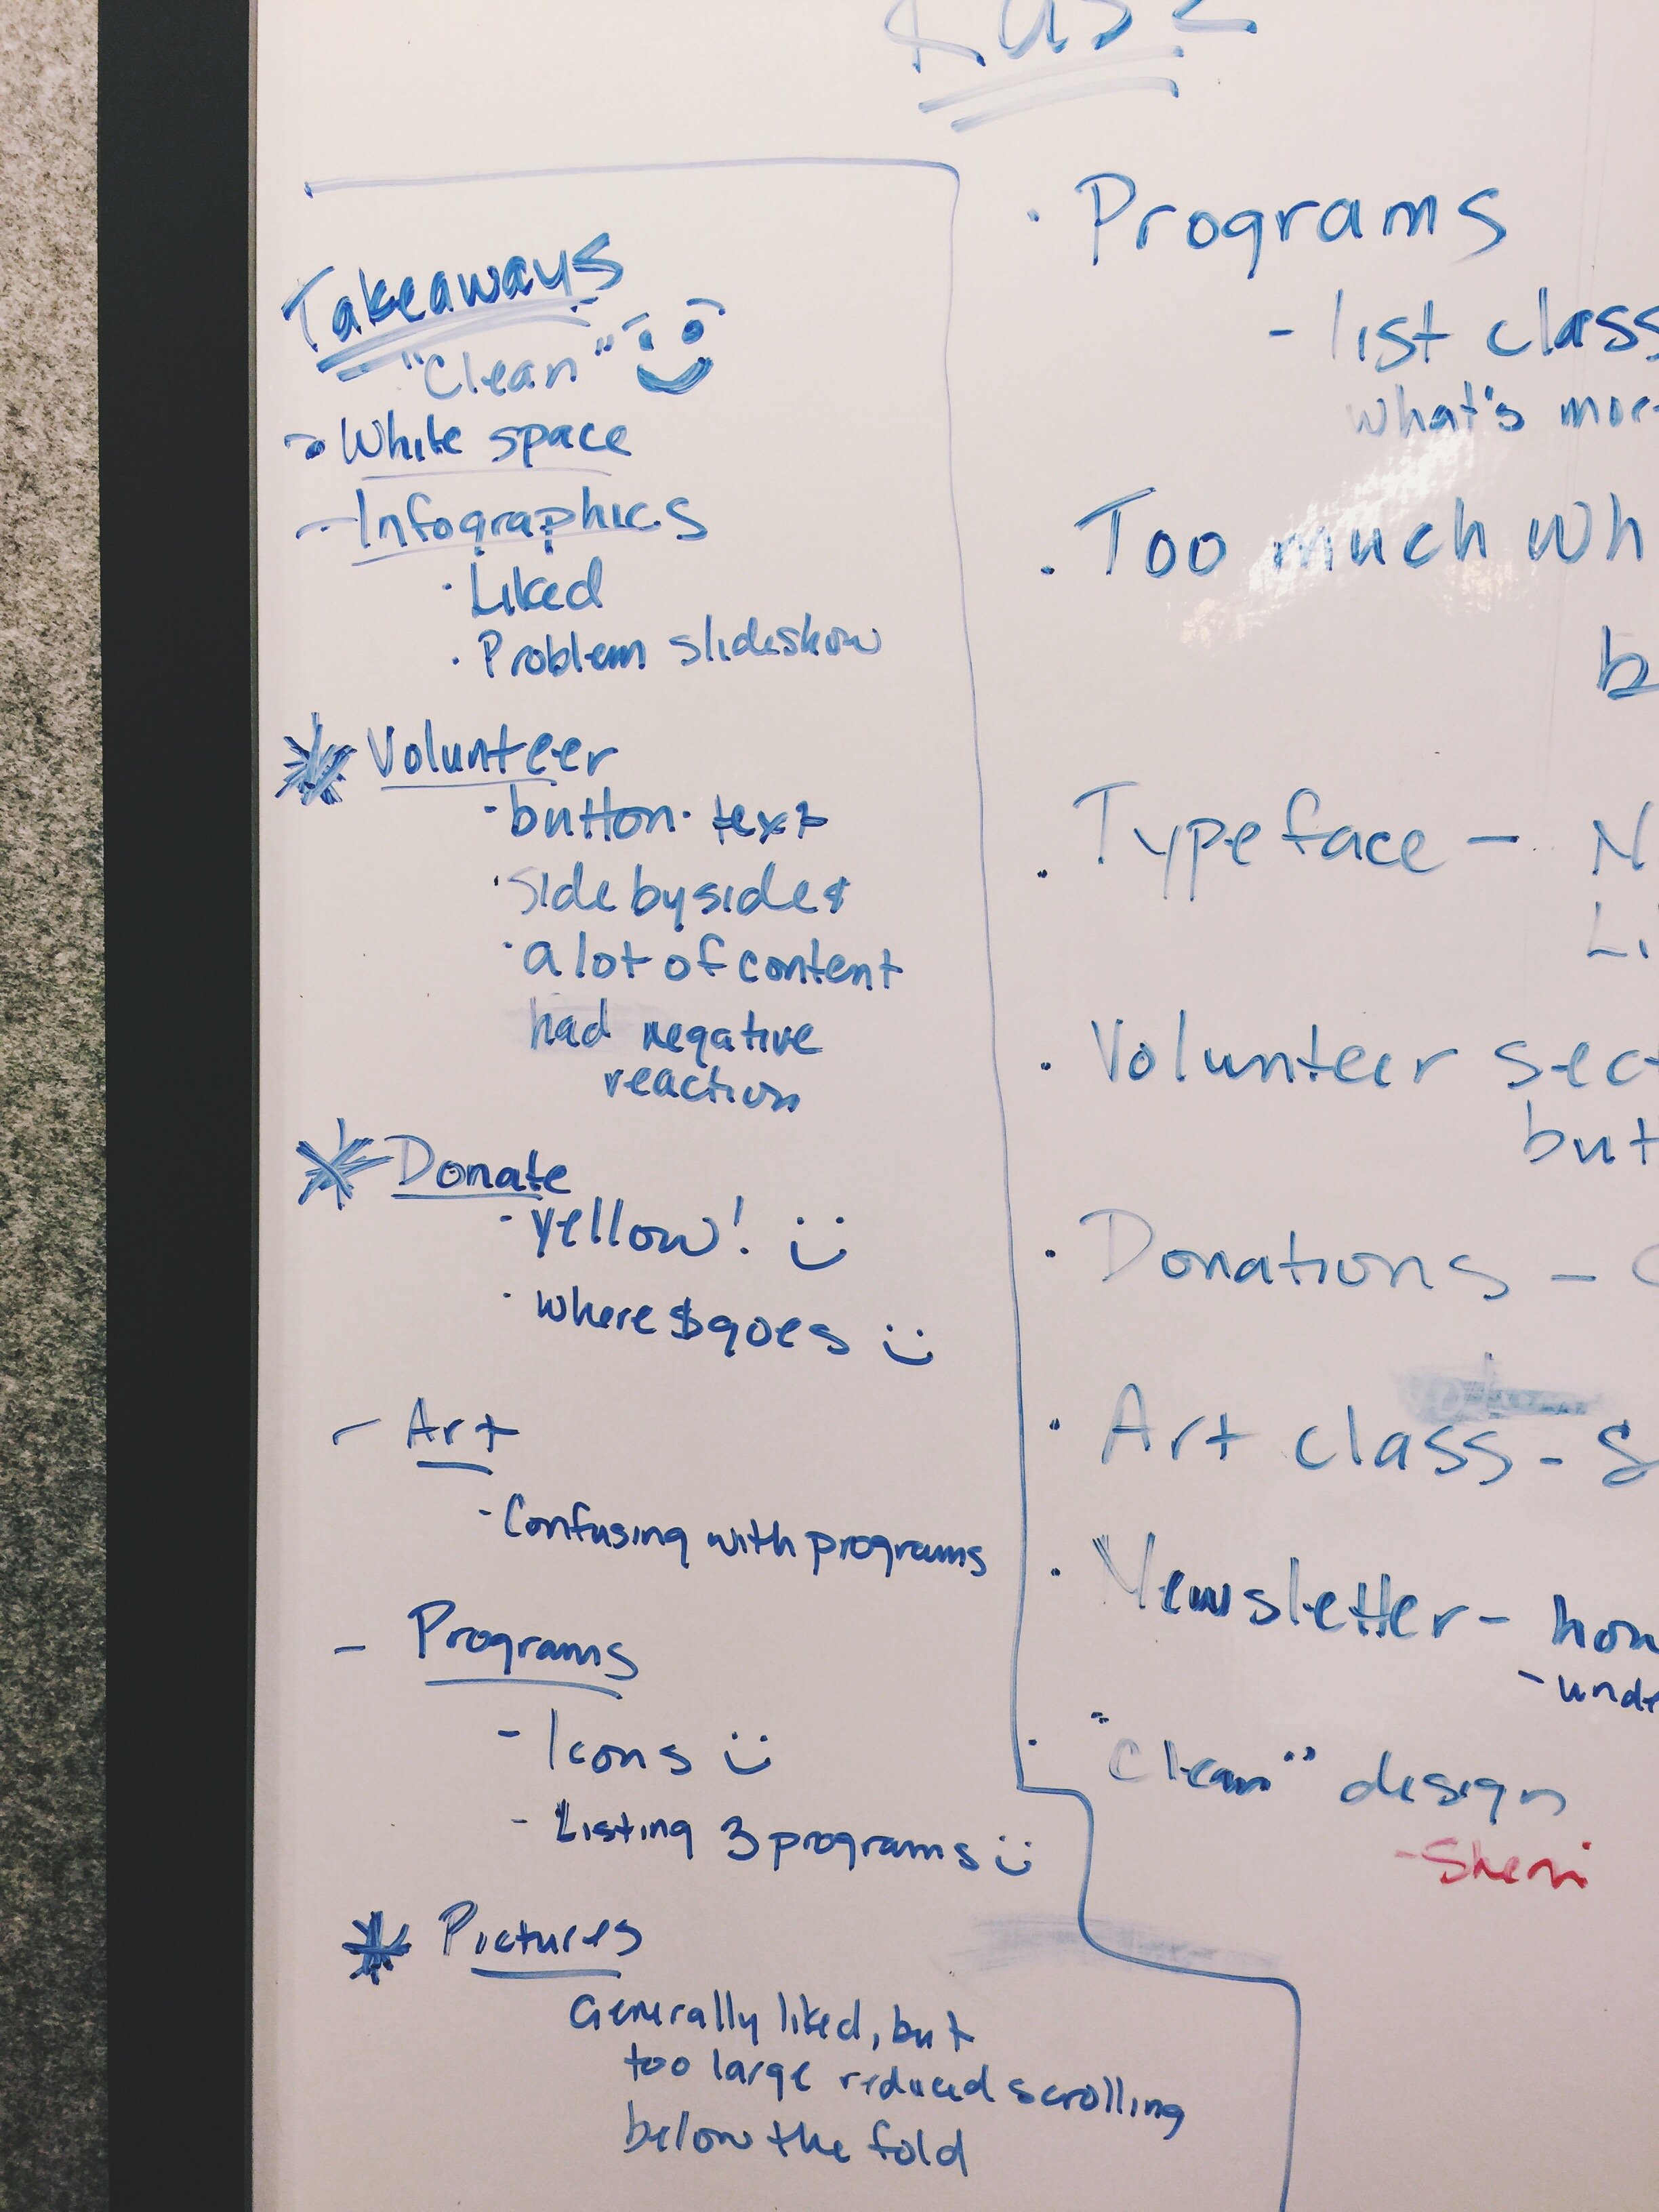 Takeaways
"Clean"
White space
- Infographics
· Liked
· Problem slideshow
* Volunteer
- button · text
· Side by side &
· a lot of content
had negative
reaction
* Donate
- yellow! :)
· where $ goes :)
- Art
- Confusing with programs
- Programs
- Icons :)
- Listing 3 programs :)
* Pictures
Generally liked, but
too large reduced scrolling
below the fold
· Programs
- list class
what's mor
· Too much wh
b
· Typeface - N
Li
· Volunteer sect
but
· Donations -
· Art class - S
· Newsletter - how
- unde
· "Clean" design
- Sherri